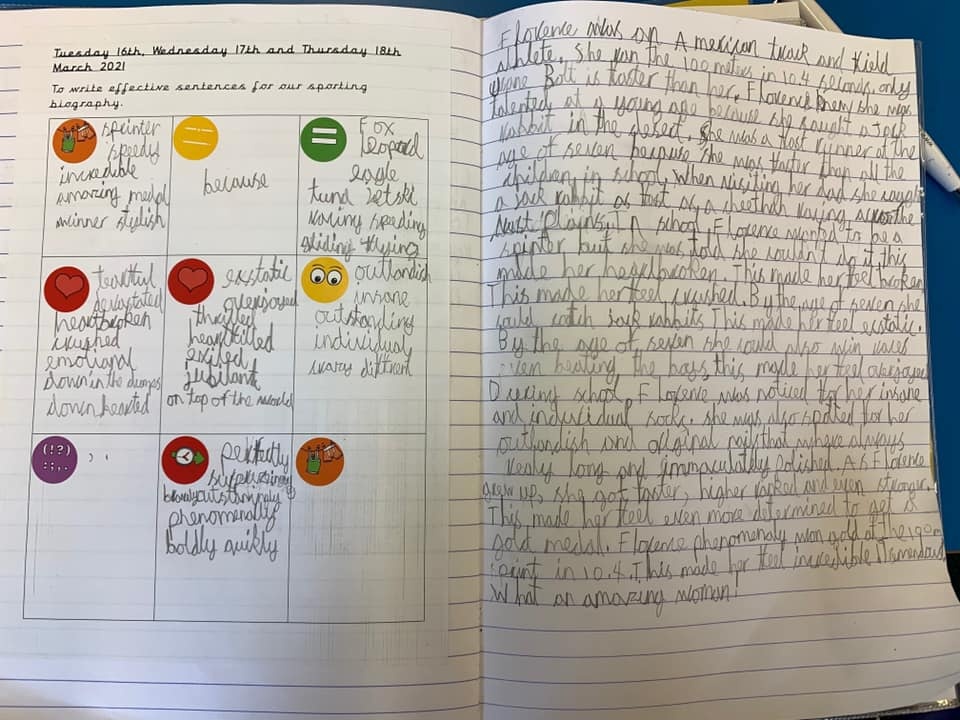 Tuesday 16th, Wednesday 17th and Thursday 18th
March 2021
To write effective sentences for our sporting
biography.
sprinter
speedy
incredible
amazing medal
winner stylish
because
=
Fox
Leopard
eagle
jetski
speding
gliding flying
tearful
devastated
heartbroken
crushed
emotional
down in the dumps
down hearted
exstatic
overjoyed
thrilled
exited
jubilant
on top of the world
outlandish
insane
outstanding
individual
different
(!?)
:;,.
, .
perfectly
phenomenally
boldly quikly
Florence was an American track and field
athlete. She ran the 100 meters in 10.4 seconds, only
Bolt is faster than her. Florence she was
talented at a young age because she caught a jack
rabbit in the desert. She was a fast runner at the
age of seven because she was faster than all the
children in school. When visiting her dad she caught
a jack rabbit as fast as a cheetah across the
plains. In school, Florence wanted to be a
sprinter but she was told she couldnt do it this
made her heartbroken. This made her feel broken
This made her feel crushed. By the age of seven she
could catch jack rabbits This made her feel ecstatic.
By the age of seven she could also win races
even beating the boys, this made her feel overjoyed
During school, Florence was noticed for her insane
and individual socks. she was also spotted for her
outlandish and original nails that always
realy long and immaculatly polished. As Florence
grew up, she got faster, higher ranked and even stronger.
This made her feel even more determined to get a
gold medal. Florence phenomenaly won gold at the 100m
sprint in 10.4. This made her feel increadible
What an amazing woman!